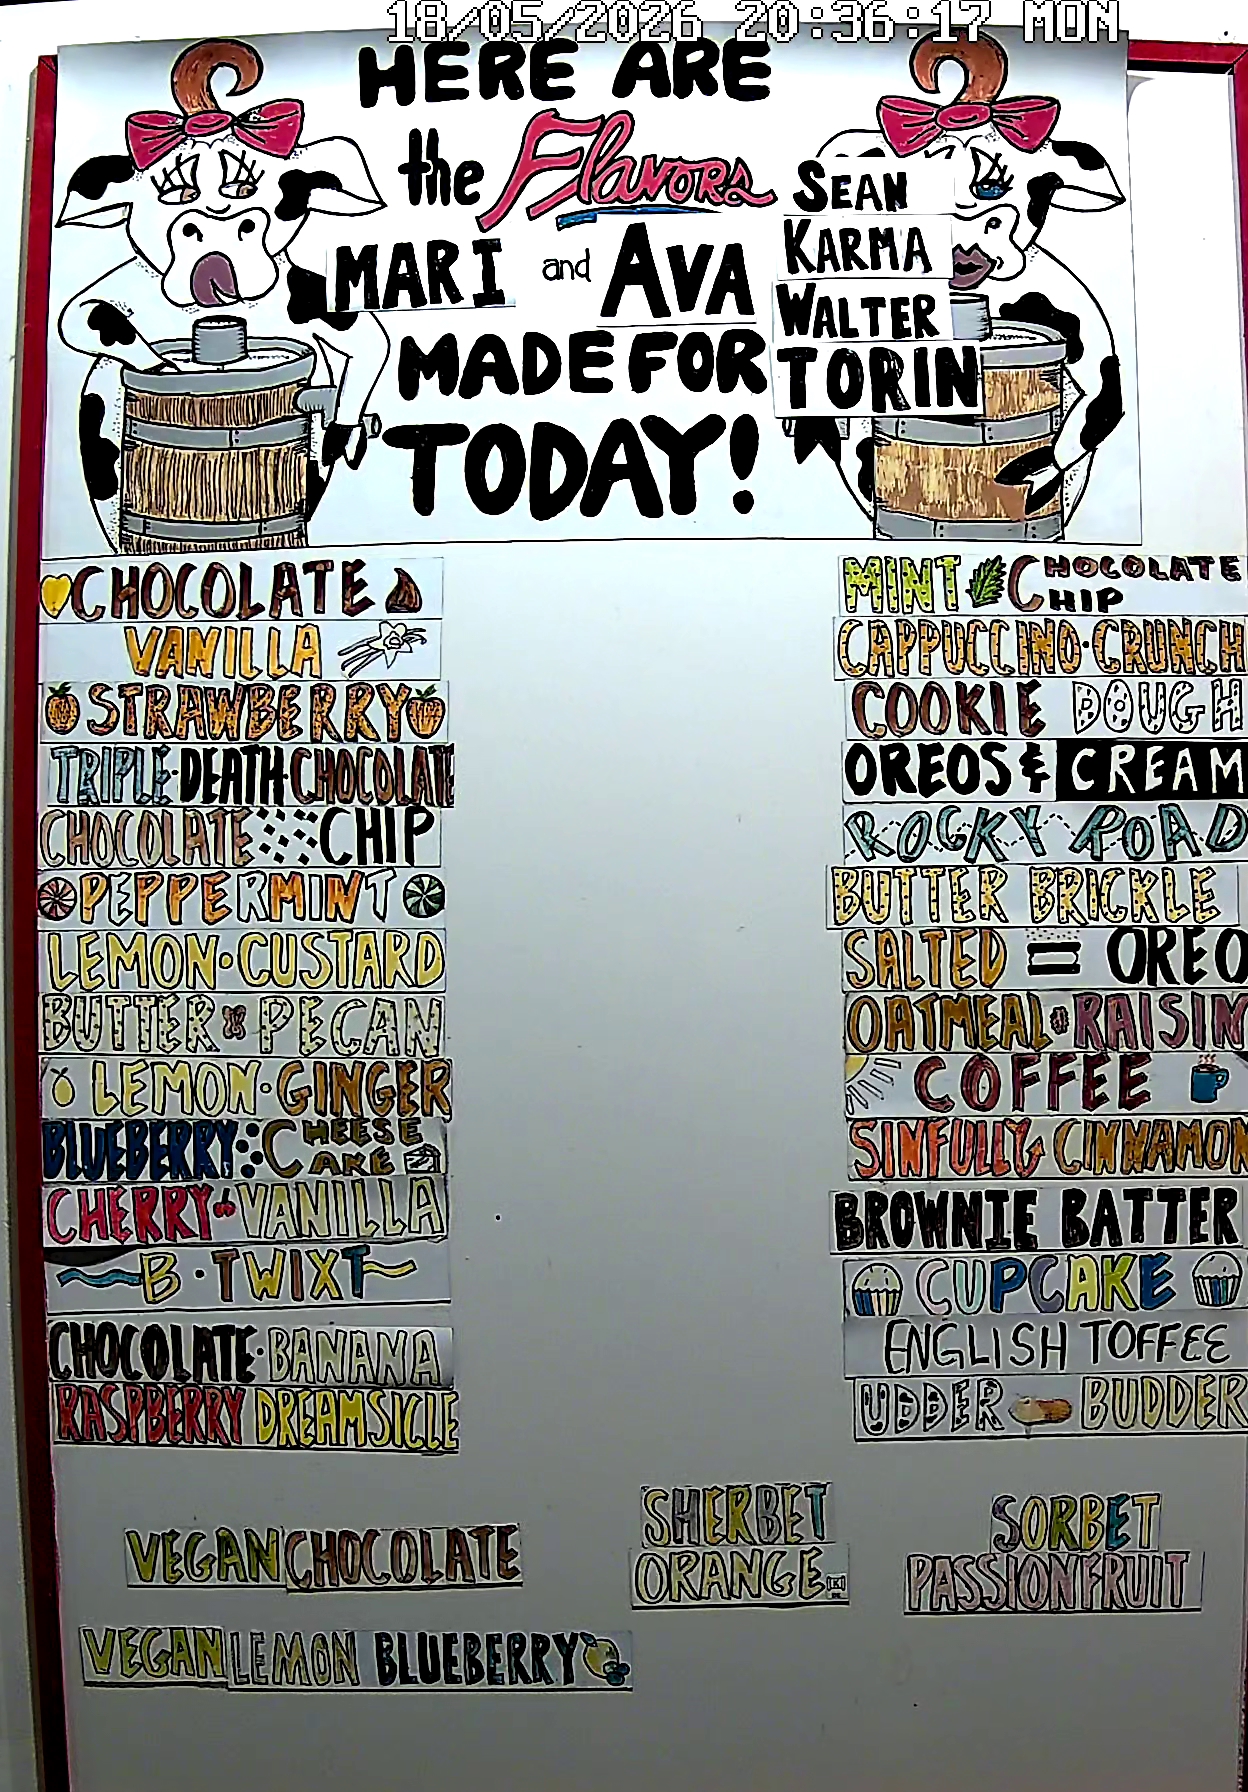 18/05/2026 20:36:17 MON
HERE ARE
the Flavors
MARI and AVA
MADE FOR
TODAY!
SEAN
KARMA
WALTER
TORIN
CHOCOLATE
VANILLA
STRAWBERRY
TRIPLE·DEATH·CHOCOLATE
CHOCOLATE CHIP
PEPPERMINT
LEMON·CUSTARD
BUTTER PECAN
LEMON·GINGER
BLUEBERRY CHEESE CAKE
CHERRY VANILLA
B·TWIXT
CHOCOLATE·BANANA
RASPBERRY DREAMSICLE
MINT CHOCOLATE CHIP
CAPPUCCINO·CRUNCH
COOKIE DOUGH
OREOS & CREAM
ROCKY ROAD
BUTTER BRICKLE
SALTED OREO
OATMEAL RAISIN
COFFEE
SINFULLY CINNAMON
BROWNIE BATTER
CUPCAKE
ENGLISH TOFFEE
UDDER BUDDER
VEGAN CHOCOLATE
VEGAN LEMON BLUEBERRY
SHERBET
ORANGE
SORBET
PASSIONFRUIT